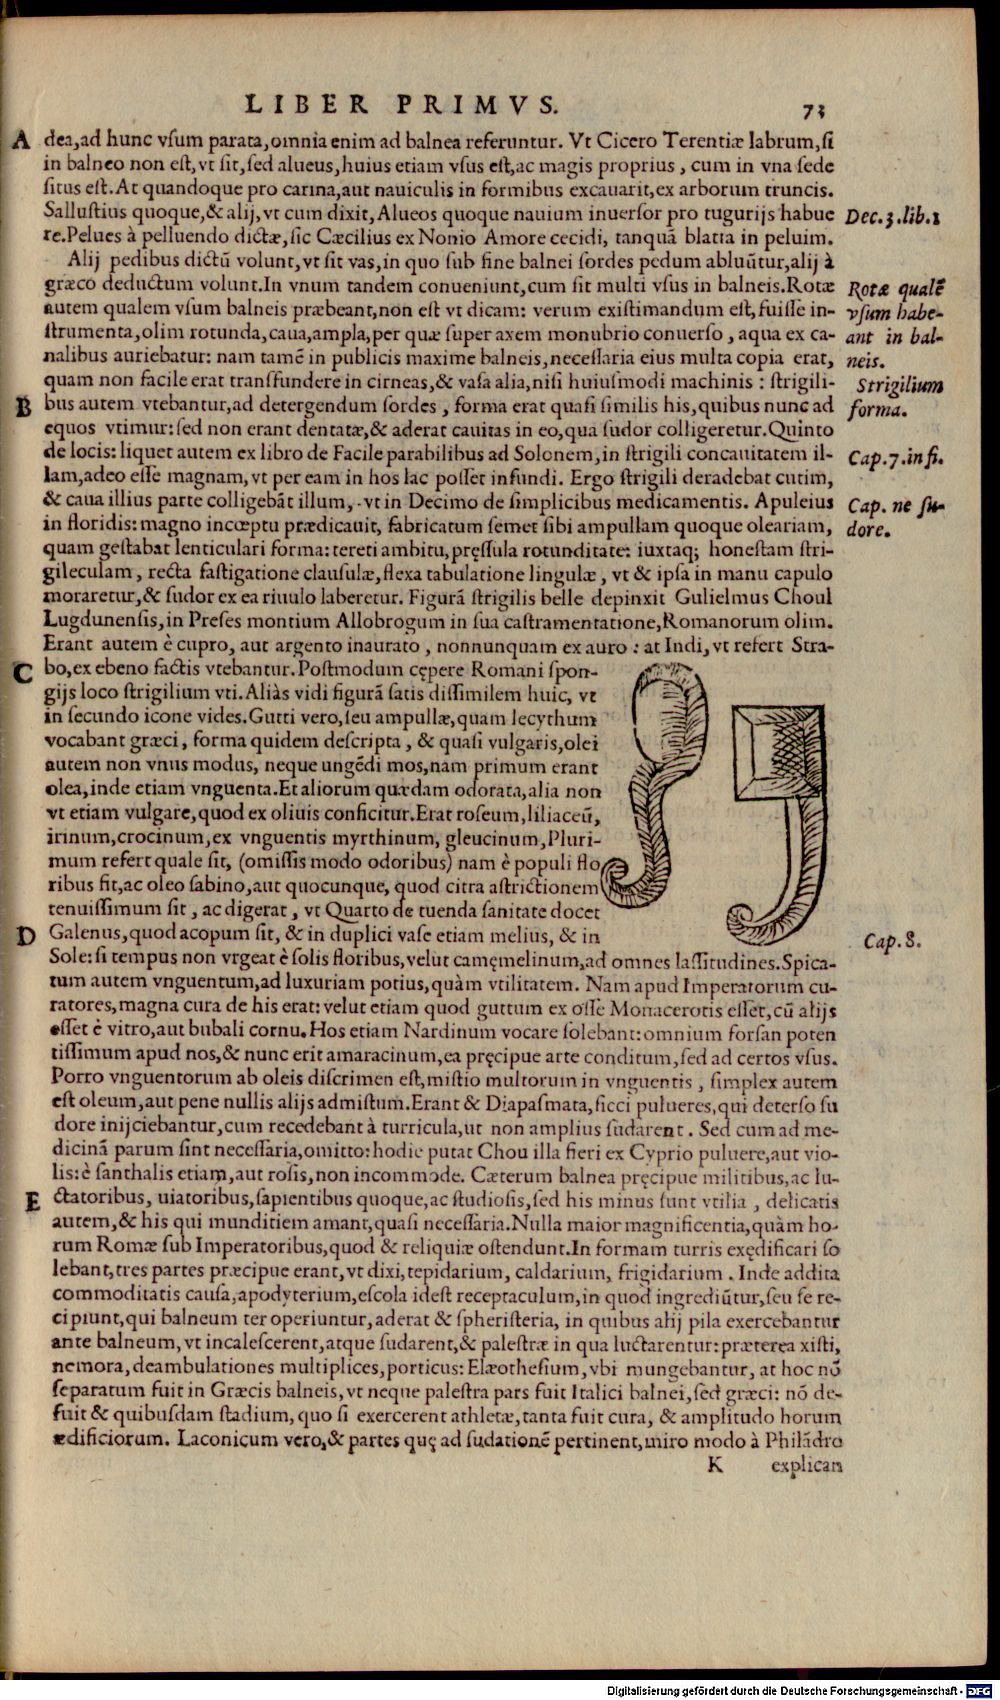 LIBER PRIMVS. 73
A dea,ad hunc vſum parata,omnia enim ad balnea referuntur. Vt Cicero Terentiæ labrum,ſi
in balneo non eſt,vt ſit,ſed alueus,huius etiam vſus eſt,ac magis proprius, cum in vna ſede
ſitus eſt.At quandoque pro carina,aut nauiculis in formibus excauarit,ex arborum truncis.
Salluſtius quoque,& alij,vt cum dixit,Alueos quoque nauium inuerſor pro tugurijs habue
Dec.3.lib.1
re.Pelues à pelluendo dictæ,ſic Cæcilius ex Nonio Amore cecidi, tanquã blatta in peluim.
Alij pedibus dictũ volunt,vt ſit vas,in quo ſub fine balnei ſordes pedum abluũtur,alij à
græco deductum volunt.In vnum tandem conueniunt,cum ſit multi vſus in balneis.Rotæ
autem qualem vſum balneis præbeant,non eſt vt dicam: verum exiſtimandum eſt,fuiſſe in-
ſtrumenta,olim rotunda,caua,ampla,per quæ ſuper axem monubrio conuerſo, aqua ex ca-
nalibus auriebatur: nam tamẽ in publicis maxime balneis,neceſſaria eius multa copia erat,
Rotæ qualẽ
vſum habe-
ant in bal-
neis.
quam non facile erat tranſfundere in cirneas,& vaſa alia,niſi huiuſmodi machinis: ſtrigili-
B bus autem vtebantur,ad detergendum ſordes, forma erat quaſi ſimilis his,quibus nunc ad
Strigilium
forma.
equos vtimur:ſed non erant dentatæ,& aderat cauitas in eo,qua ſudor colligeretur.Quinto
de locis: liquet autem ex libro de Facile parabilibus ad Solonem,in ſtrigili concauitatem il-
Cap.7.in fi.
lam,adeo eſſe magnam,vt per eam in hos lac poſſet infundi. Ergo ſtrigili deradebat cutim,
& caua illius parte colligebãt illum, vt in Decimo de ſimplicibus medicamentis. Apuleius
in floridis: magno incœptu prædicauit, fabricatum ſemet ſibi ampullam quoque oleariam,
Cap. ne ſu-
dore.
quam geſtabat lenticulari forma: tereti ambitu,pręſſula rotunditate: iuxtaq; honeſtam ſtri-
gileculam, recta faſtigatione clauſulæ,flexa tabulatione lingulæ, vt & ipſa in manu capulo
moraretur,& ſudor ex ea riuulo laberetur. Figurã ſtrigilis belle depinxit Gulielmus Choul
Lugdunenſis,in Preſes montium Allobrogum in ſua caſtramentatione,Romanorum olim.
Erant autem è cupro, aut argento inaurato, nonnunquam ex auro: at Indi,vt refert Stra-
C bo,ex ebeno factis vtebantur.Poſtmodum cępere Romani ſpon-
gijs loco ſtrigilium vti.Aliàs vidi figurã ſatis diſſimilem huic, vt
in ſecundo icone vides.Gutti vero,ſeu ampullæ,quam lecythum
vocabant græci, forma quidem deſcripta, & quaſi vulgaris,olei
autem non vnus modus, neque ungẽdi mos,nam primum erant
olea,inde etiam vnguenta.Et aliorum quædam odorata,alia non
vt etiam vulgare,quod ex oliuis conficitur.Erat roſeum,liliaceũ,
irinum,crocinum,ex vnguentis myrthinum, gleucinum,Pluri-
mum refert quale ſit, (omiſſis modo odoribus) nam è populi flo
ribus fit,ac oleo ſabino,aut quocunque, quod citra aſtrictionem
tenuiſſimum ſit, ac digerat, vt Quarto de tuenda ſanitate docet
D Galenus,quod acopum ſit, & in duplici vaſe etiam melius, & in
Cap.8.
Sole: ſi tempus non vrgeat è ſolis floribus,velut camęmelinum,ad omnes laſſitudines.Spica-
tum autem vnguentum,ad luxuriam potius,quàm vtilitatem. Nam apud Imperatorum cu-
ratores,magna cura de his erat: velut etiam quod guttum ex oſſe Monacerotis eſſet,cũ alijs
eſſet è vitro,aut bubali cornu.Hos etiam Nardinum vocare ſolebant:omnium forſan poten
tiſſimum apud nos,& nunc erit amaracinum,ea pręcipue arte conditum,ſed ad certos vſus.
Porro vnguentorum ab oleis diſcrimen eſt,miſtio multorum in vnguentis, ſimplex autem
eſt oleum,aut pene nullis alijs admiſtum.Erant & Diapaſmata,ſicci pulueres,qui deterſo ſu
dore inijciebantur,cum recedebant à turricula,ut non amplius ſudarent. Sed cum ad me-
dicinã parum ſint neceſſaria,omitto: hodie putat Chou illa fieri ex Cyprio puluere,aut vio-
lis: è ſanthalis etiam,aut roſis,non incommode. Cæterum balnea pręcipue militibus,ac lu-
E ctatoribus, uiatoribus,ſapientibus quoque,ac ſtudioſis,ſed his minus ſunt vtilia, delicatis
autem,& his qui munditiem amant,quaſi neceſſaria.Nulla maior magnificentia,quàm ho-
rum Romæ ſub Imperatoribus,quod & reliquiæ oſtendunt.In formam turris exędificari ſo
lebant,tres partes præcipue erant,vt dixi,tepidarium, caldarium, frigidarium. Inde addita
commoditatis cauſa,apodyterium,eſcola ideſt receptaculum,in quod ingrediũtur,ſeu ſe re-
cipiunt,qui balneum ter operiuntur,aderat & ſpheriſteria, in quibus alij pila exercebantur
ante balneum,vt incaleſcerent,atque ſudarent,& paleſtræ in qua luctarentur: præterea xiſti,
nemora,deambulationes multiplices,porticus: Elæotheſium,vbi mungebantur, at hoc nõ
ſeparatum fuit in Græcis balneis,vt neque paleſtra pars fuit Italici balnei,ſed græci: nõ de-
fuit & quibuſdam ſtadium, quo ſi exercerent athletæ,tanta fuit cura, & amplitudo horum
ædificiorum. Laconicum vero,& partes quę ad ſudationẽ pertinent,miro modo à Philãdro
K explican
Digitalisierung gefördert durch die Deutsche Forschungsgemeinschaft - DFG